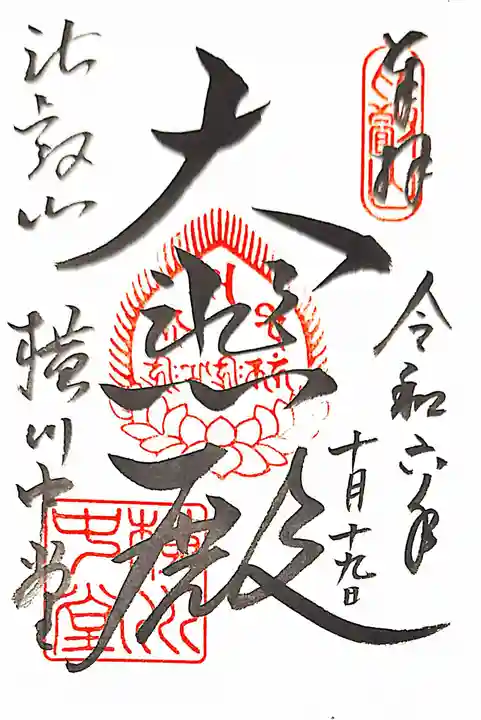 奉拝
令和六年
十月十九日
大悲殿
比叡山
横川中堂
横川
中堂